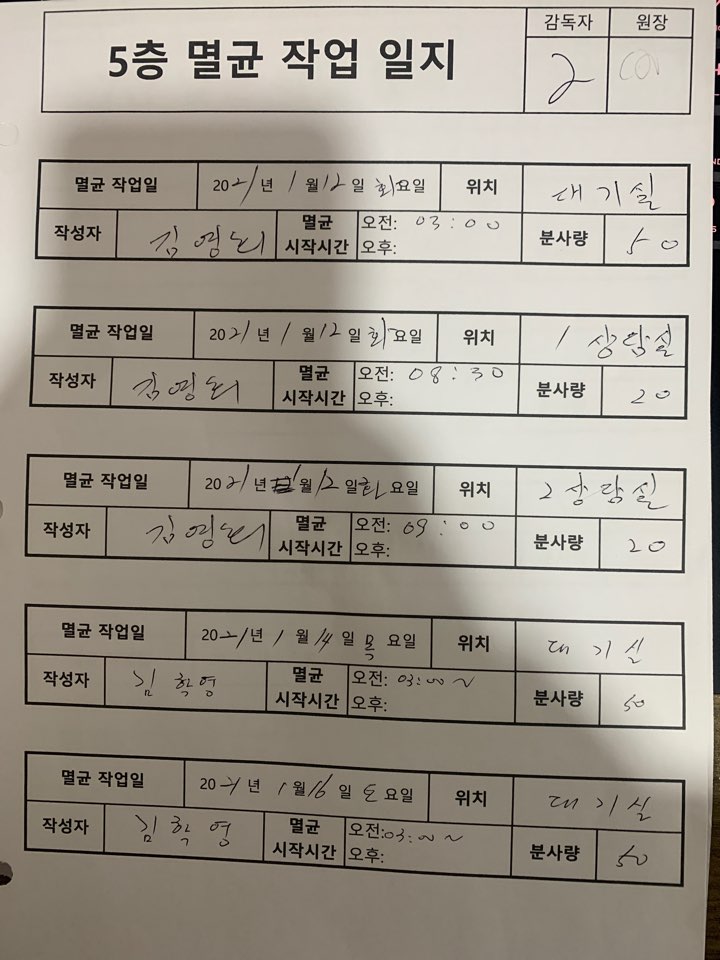 5층 멸균 작업 일지
감독자 원장
멸균 작업일 2021년 1월 12일 화요일 위치 대기실
작성자 김영희 멸균 시작시간 오전: 03:00 분사량 50
오후:
멸균 작업일 2021년 1월 12일 화요일 위치 1 상담실
작성자 김영희 멸균 시작시간 오전: 08:30 분사량 20
오후:
멸균 작업일 2021년 월 12일 화요일 위치 2상담실
작성자 김영희 멸균 시작시간 오전: 09:00 분사량 20
오후:
멸균 작업일 2021년 1월 14일 목요일 위치 대기실
작성자 김학영 멸균 시작시간 오전: 03:00~ 분사량 50
오후:
멸균 작업일 2021년 1월 16일 토요일 위치 대기실
작성자 김학영 멸균 시작시간 오전: 03:00~ 분사량 50
오후: